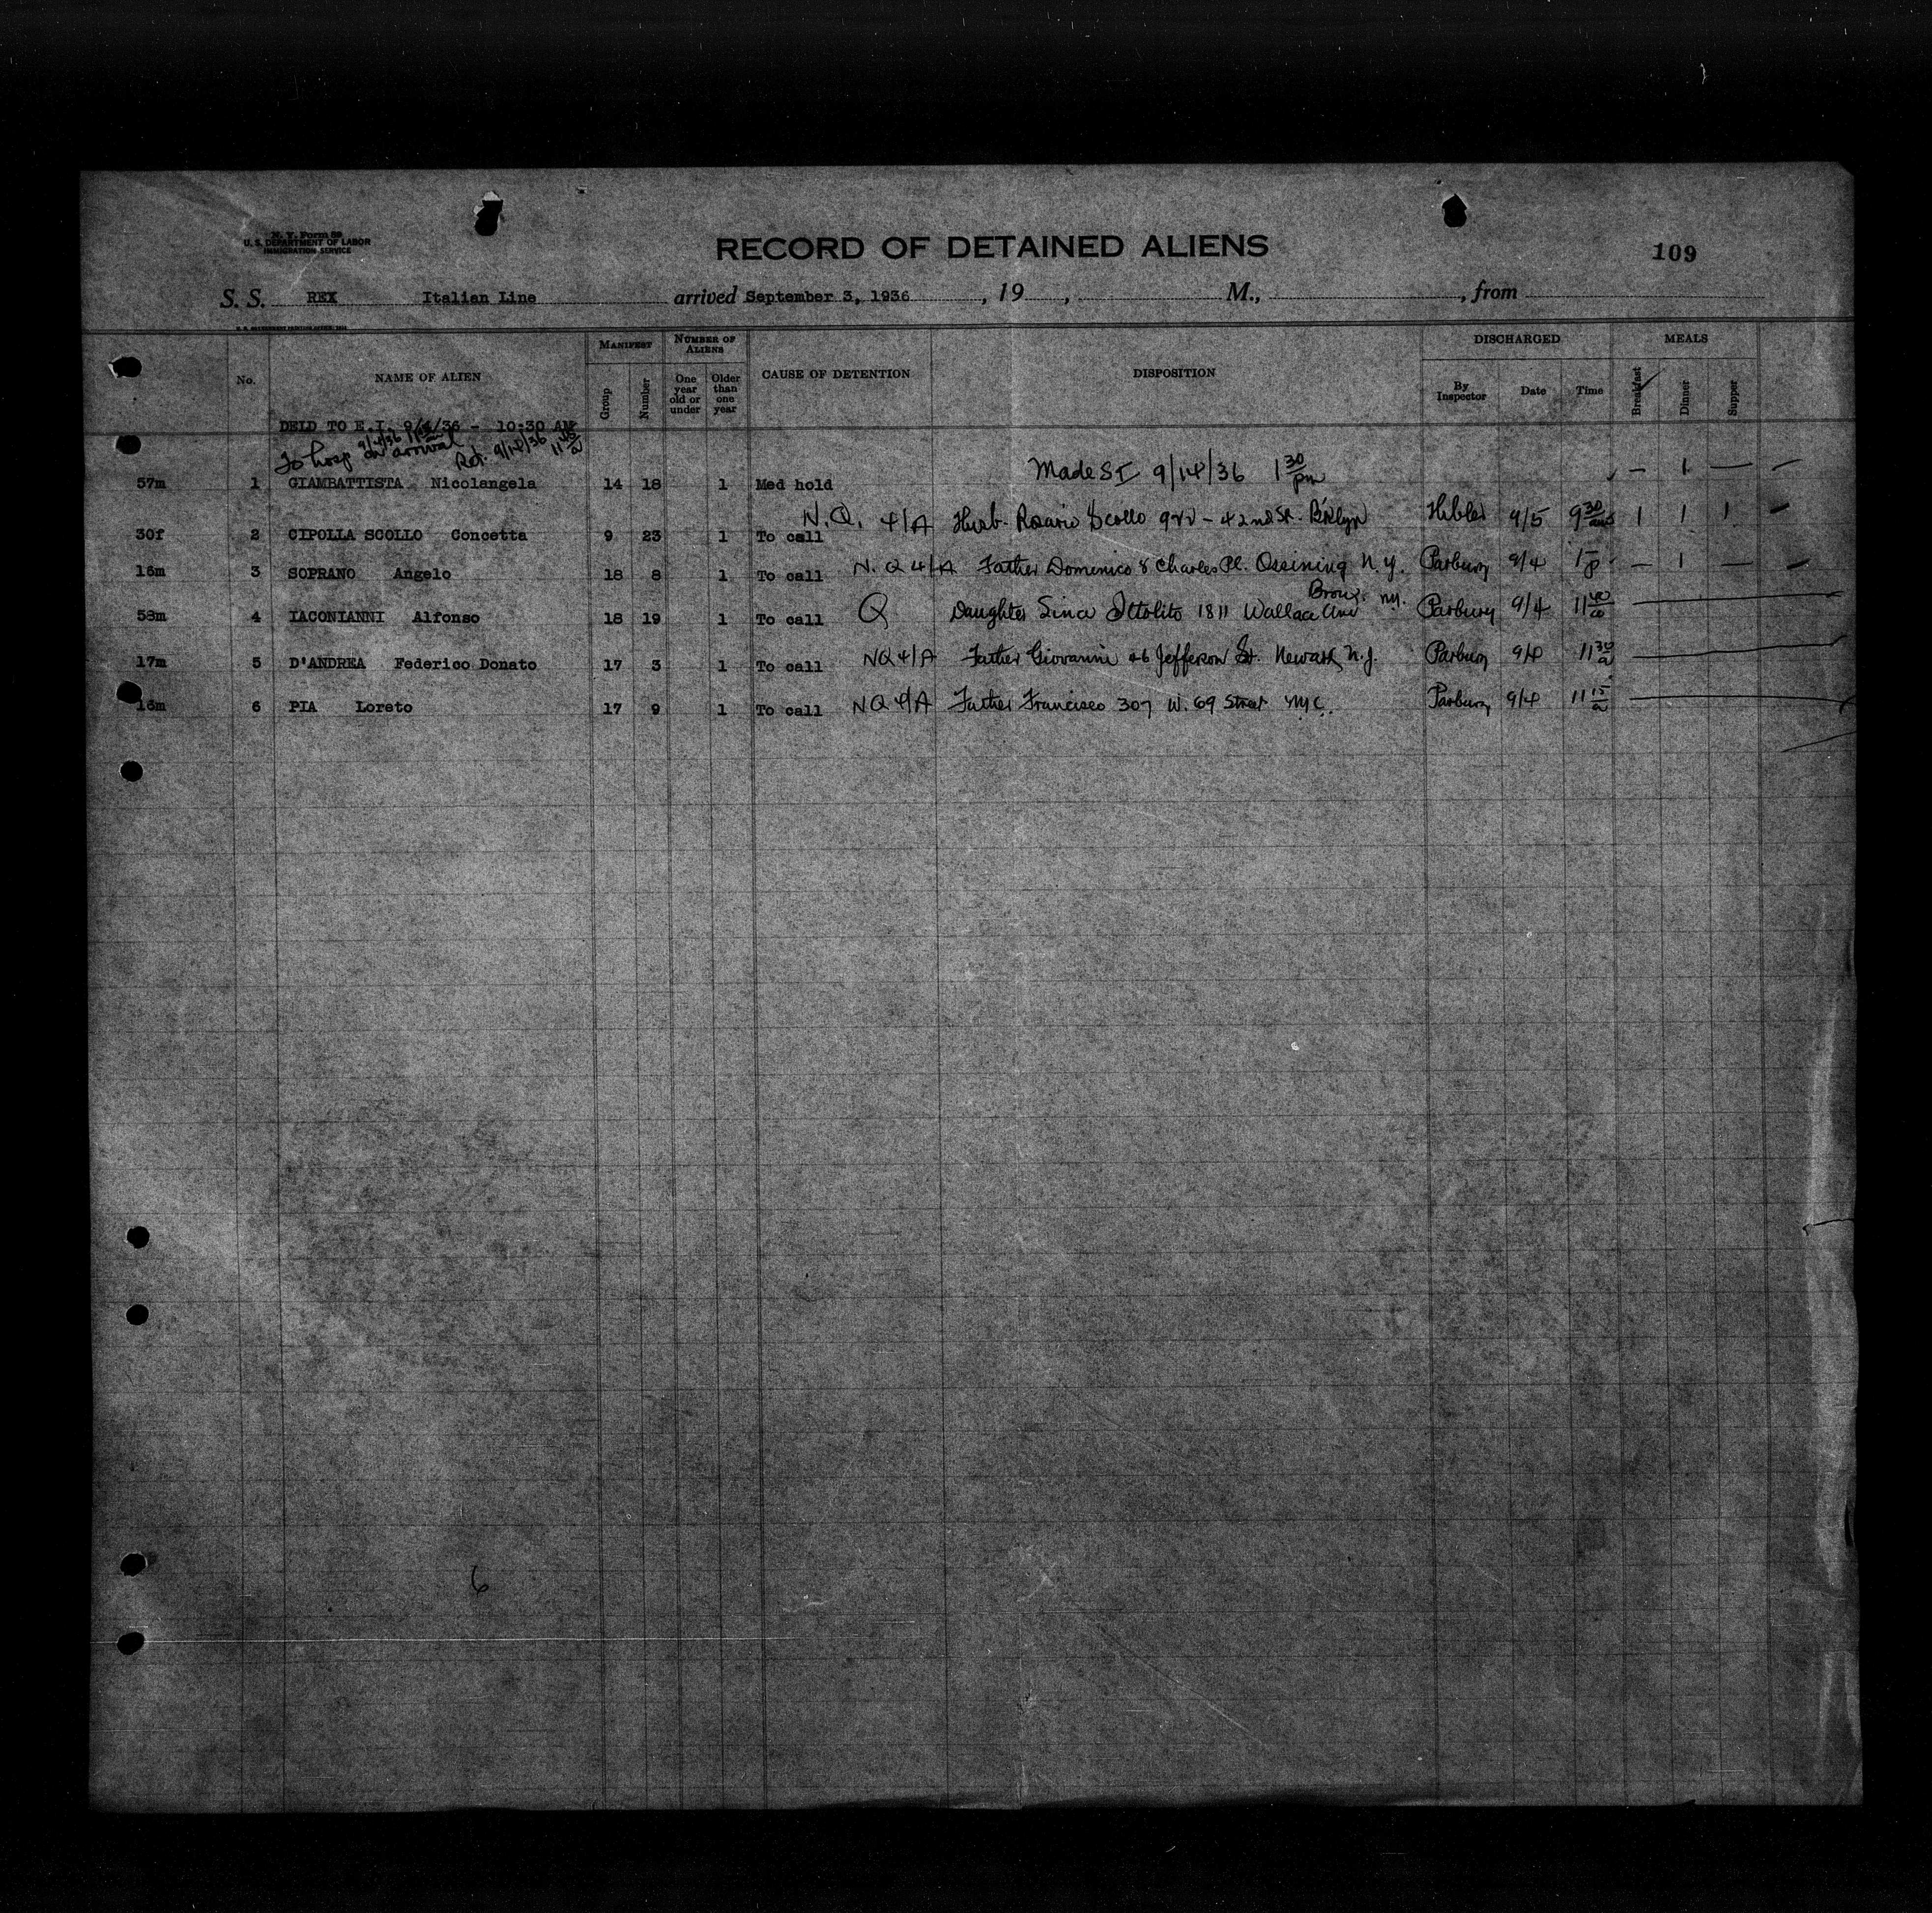 N. Y. Form 89
U. S. DEPARTMENT OF LABOR
IMMIGRATION SERVICE
RECORD OF DETAINED ALIENS
109
S. S. REX Italian Line arrived September 3, 1936, 19, M., , from
No. NAME OF ALIEN MANIFEST Group Number NUMBER OF ALIENS One year old or under Older than one year CAUSE OF DETENTION DISPOSITION DISCHARGED By Inspector Date Time MEALS Breakfast Dinner Supper
DELD TO E.I. 9/4/36 - 10:30 AM
To hosp 9/4/36 on arrival Ret. 9/14/36 11 45/a
57m 1 GIAMBATTISTA Nicolangela 14 18 1 Med hold Made SI 9/14/36 1 30/pm — 1 —
30f 2 CIPOLLA SCOLLO Concetta 9 23 1 To call N.Q. 4/A Husb. Rosario Scollo 922 - 42nd St. B'klyn Hibler 9/5 9 30/am 1 1 1
16m 3 SOPRANO Angelo 18 8 1 To call N.Q 4/A Father Domenico 8 Charles Pl. Ossining N.Y. Parbury 9/4 1 p — 1 —
58m 4 IACONIANNI Alfonso 18 19 1 To call Q Daughter Lina 1811 Wallace Ave Bronx. NY. Parbury 9/4 11
17m 5 D'ANDREA Federico Donato 17 3 1 To call NQ 4/A Father Giovanni 46 Jefferson St. Newark N.J. Parbury 9/4 11 30/a
16m 6 PIA Loreto 17 9 1 To call NQ 4/A Father Francisco 307 W. 69 Street NYC. Parbury 9/4 11 15/a
6